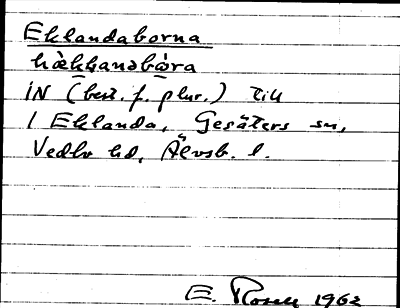 Eklandaborna
IN (best. f. plur.) till
1 Eklanda, Gesäters sn,
Vedbo hd, Älvsb. l.
E. Rosell 1962